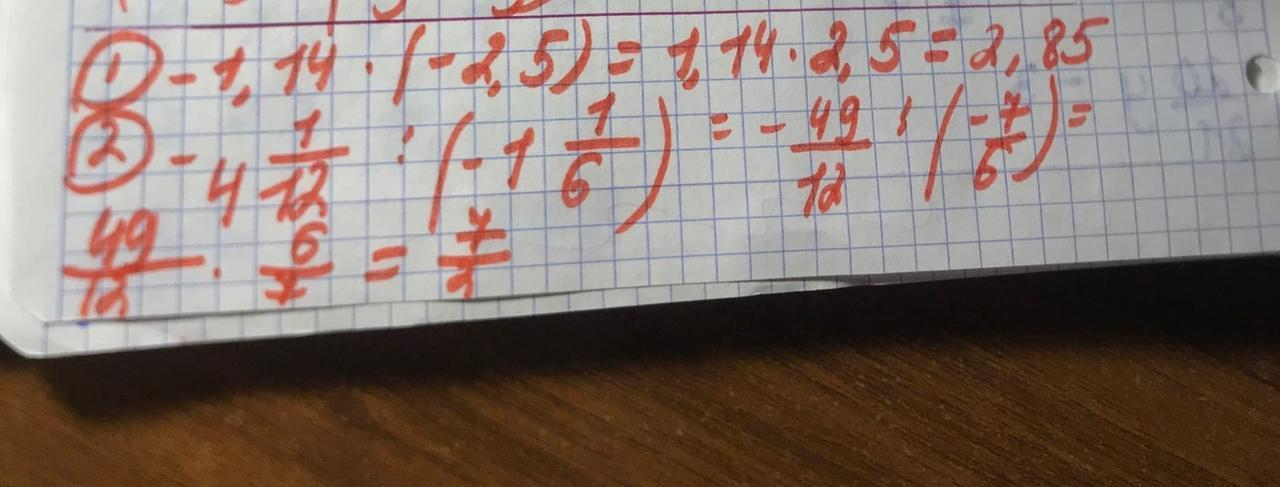 ① - 1,14 · (-2,5) = 1,14 · 2,5 = 2,85
② - 4 1/12 : (-1 1/6) = - 49/12 : (-7/6) =
49/12 · 6/7 = 7/2